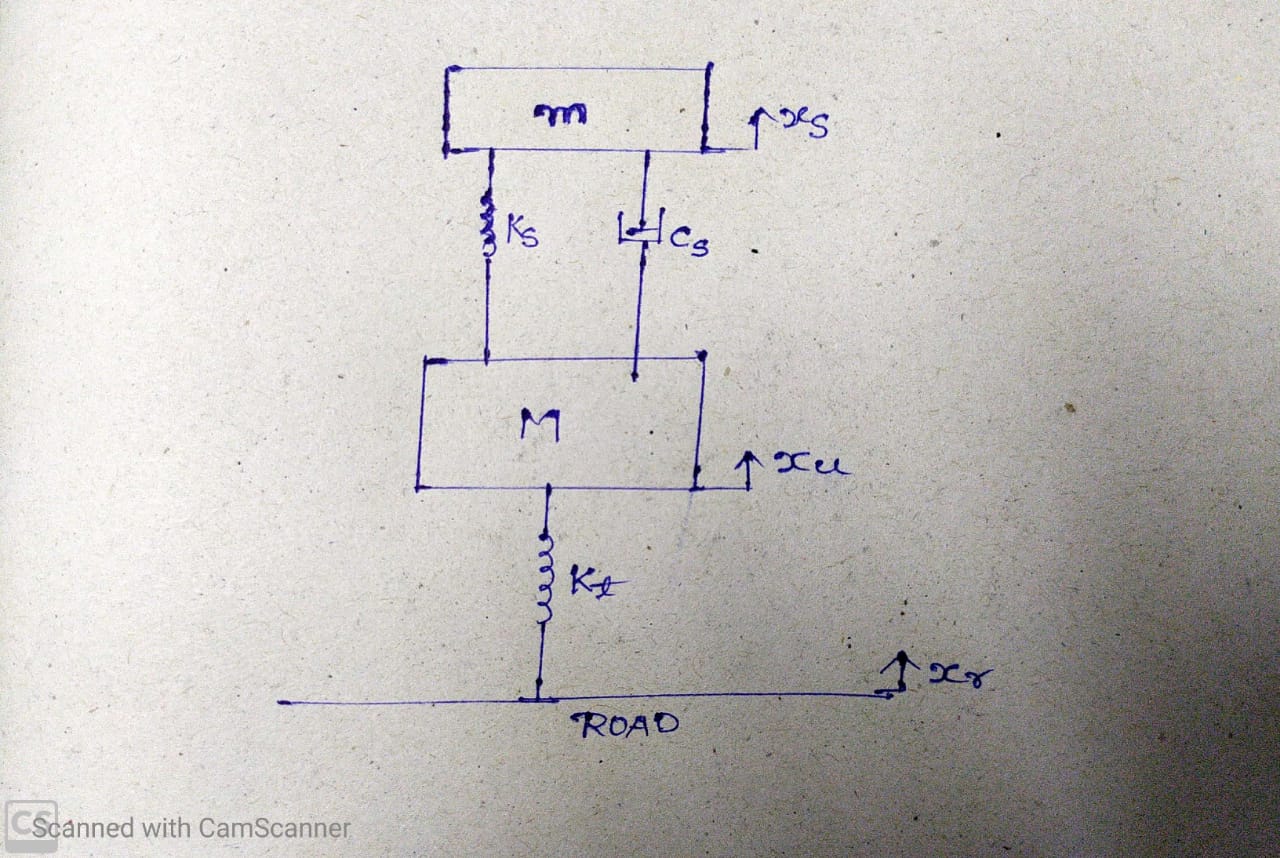 m
xs
Ks
Cs
M
xu
Kt
xr
ROAD
CS
Scanned with CamScanner